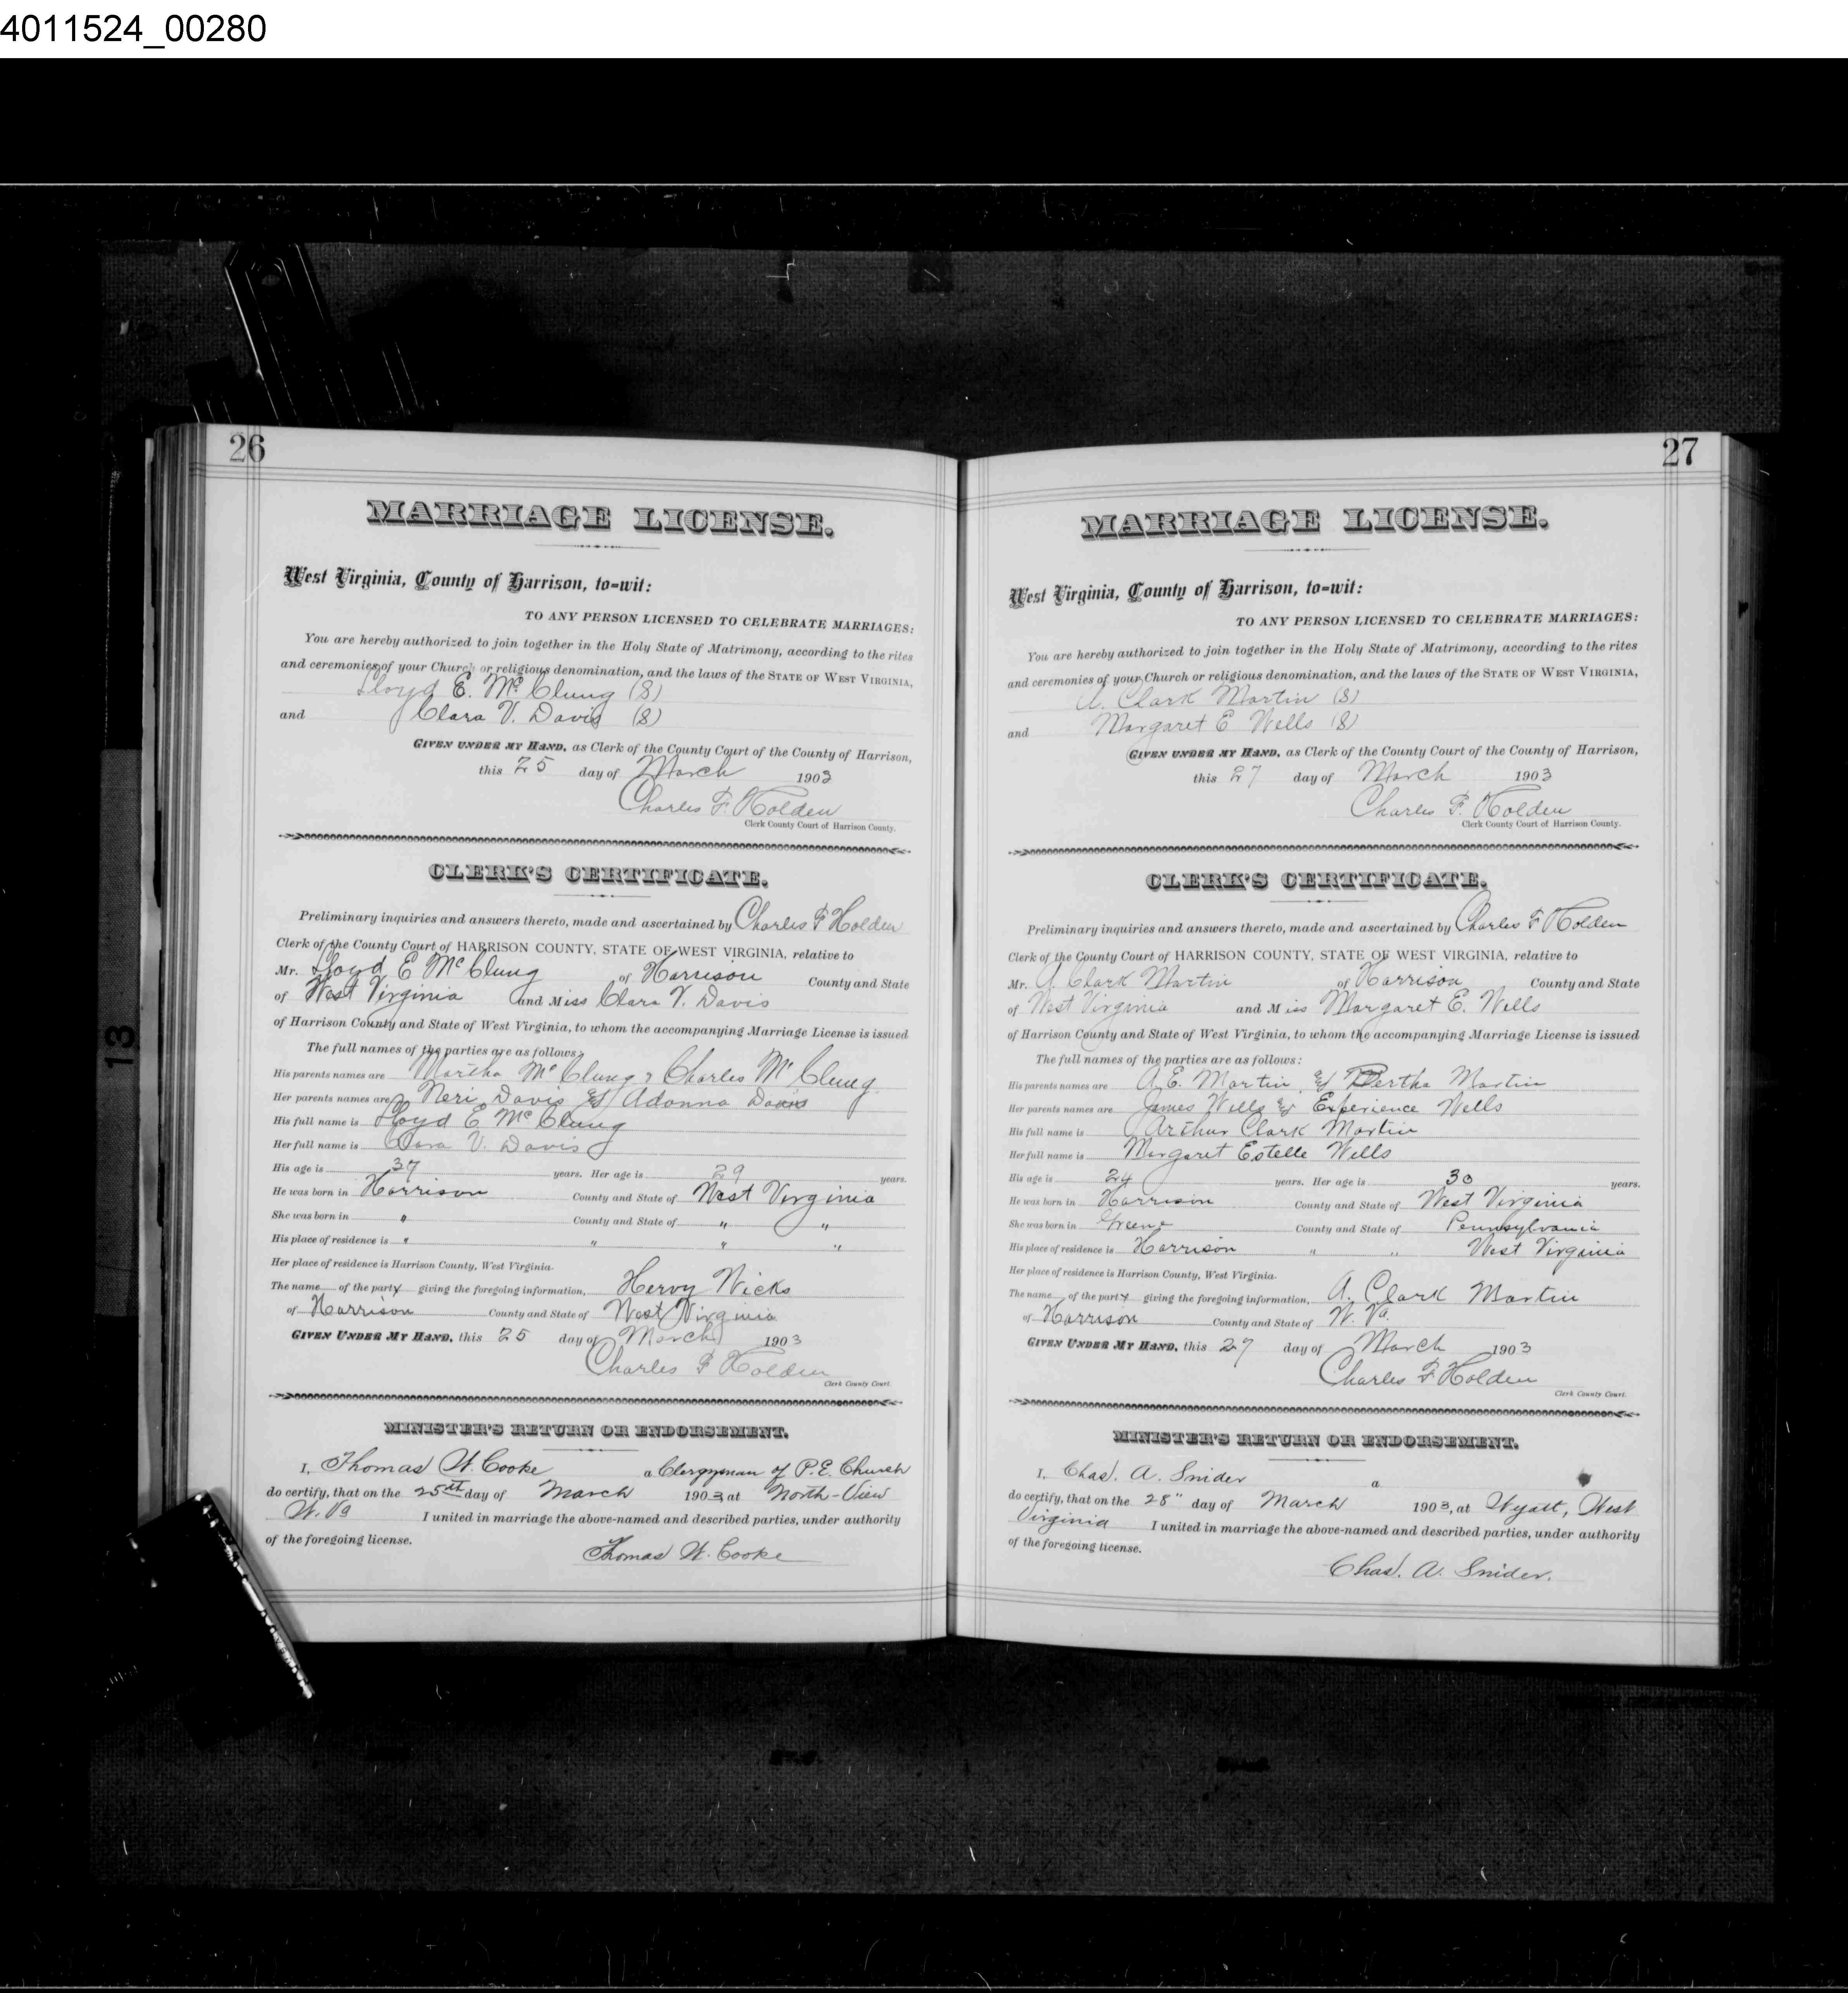 4011524_00280
26
MARRIAGE LICENSE.
West Virginia, County of Harrison, to=wit:
TO ANY PERSON LICENSED TO CELEBRATE MARRIAGES:
You are hereby authorized to join together in the Holy State of Matrimony, according to the rites
and ceremonies of your Church or religious denomination, and the laws of the STATE OF WEST VIRGINIA,
Lloyd E. McClung (S)
and Clara V. Davis (S)
GIVEN UNDER MY HAND, as Clerk of the County Court of the County of Harrison,
this 25 day of March 1903
Charles F. Holden
Clerk County Court of Harrison County.
CLERK'S CERTIFICATE.
Preliminary inquiries and answers thereto, made and ascertained by Charles F Holden
Clerk of the County Court of HARRISON COUNTY, STATE OF WEST VIRGINIA, relative to
Mr. Lloyd E McClung of Harrison County and State
of West Virginia and Miss Clara V. Davis
of Harrison County and State of West Virginia, to whom the accompanying Marriage License is issued
The full names of the parties are as follows:
His parents names are Martha McClung & Charles McClung
Her parents names are Neri Davis & Adonna Davis
His full name is Lloyd E McClung
Her full name is Clara V. Davis
His age is 37 years. Her age is 29 years.
He was born in Harrison County and State of West Virginia
She was born in " County and State of " "
His place of residence is " " " "
Her place of residence is Harrison County, West Virginia.
The name of the party giving the foregoing information, Hervy Wicks
of Harrison County and State of West Virginia
GIVEN UNDER MY HAND, this 25 day of March 1903
Charles F Holden
Clerk County Court.
MINISTER'S RETURN OR ENDORSEMENT.
I, Thomas W. Cooke a Clergyman of P.E. Church
do certify, that on the 25th day of March 1903, at North-View
W. Va I united in marriage the above-named and described parties, under authority
of the foregoing license.
Thomas W. Cooke
27
MARRIAGE LICENSE.
West Virginia, County of Harrison, to=wit:
TO ANY PERSON LICENSED TO CELEBRATE MARRIAGES:
You are hereby authorized to join together in the Holy State of Matrimony, according to the rites
and ceremonies of your Church or religious denomination, and the laws of the STATE OF WEST VIRGINIA,
A. Clark Martin (S)
and Margaret E Wells (S)
GIVEN UNDER MY HAND, as Clerk of the County Court of the County of Harrison,
this 27 day of March 1903
Charles F. Holden
Clerk County Court of Harrison County.
CLERK'S CERTIFICATE.
Preliminary inquiries and answers thereto, made and ascertained by Charles F Holden
Clerk of the County Court of HARRISON COUNTY, STATE OF WEST VIRGINIA, relative to
Mr. A. Clark Martin of Harrison County and State
of West Virginia and Miss Margaret E. Wells
of Harrison County and State of West Virginia, to whom the accompanying Marriage License is issued
The full names of the parties are as follows:
His parents names are A. E. Martin & Bertha Martin
Her parents names are James Wells & Experience Wells
His full name is Arthur Clark Martin
Her full name is Margaret Estelle Wells
His age is 24 years. Her age is 30 years.
He was born in Harrison County and State of West Virginia
She was born in Greene County and State of Pennsylvania
His place of residence is Harrison " " West Virginia
Her place of residence is Harrison County, West Virginia.
The name of the party giving the foregoing information, A. Clark Martin
of Harrison County and State of W. Va.
GIVEN UNDER MY HAND, this 27 day of March 1903
Charles F. Holden
Clerk County Court.
MINISTER'S RETURN OR ENDORSEMENT.
I, Chas. A. Snider a
do certify, that on the 28" day of March 1903, at Wyatt, West
Virginia I united in marriage the above-named and described parties, under authority
of the foregoing license.
Chas. A. Snider.
13